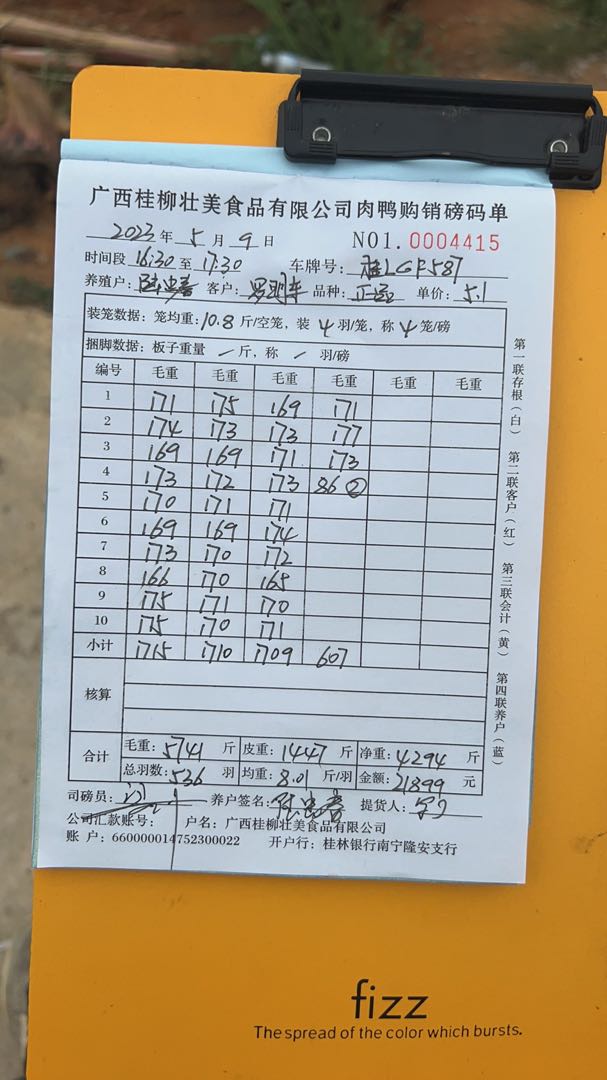 广西桂柳壮美食品有限公司肉鸭购销磅码单
2023年5月9日 NO1.0004415
时间段16:30至17:30 车牌号：桂LGF587
养殖户： 客户： 品种： 单价：5.1
装笼数据：笼均重：10.8斤/空笼，装4羽/笼，称4笼/磅
捆脚数据：板子重量/斤，称/羽/磅
编号 毛重 毛重 毛重 毛重 毛重 毛重
1 171 175 169 171
2 174 173 173 177
3 169 169 171 173
4 173 172 173 86②
5 170 171 171
6 169 169 174
7 173 170 172
8 166 170 165
9 175 171 170
10 175 170 171
小计 1715 1710 1709 607
核算
合计 毛重：5741斤 皮重：1447斤 净重：4294斤
总羽数：536羽 均重：8.01斤/羽 金额：21899元
司磅员： 养户签名： 提货人：
公司汇款账号： 户名：广西桂柳壮美食品有限公司
账户：660000014752300022 开户行：桂林银行南宁隆安支行
第一联存根（白） 第二联客户（红） 第三联会计（黄） 第四联养户（蓝）
fizz
The spread of the color which bursts.